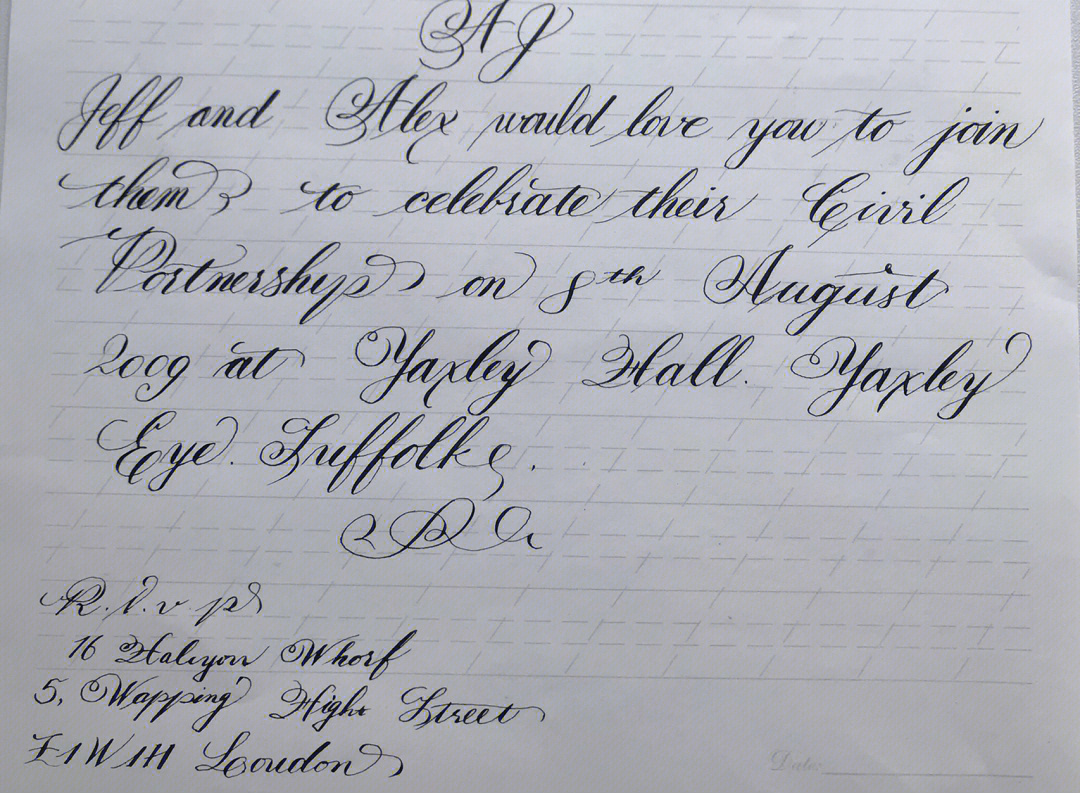 AJ
Jeff and Alex would love you to join
them to celebrate their Civil
Partnership on 8th August
2009 at Yaxley Hall. Yaxley
Eye. Suffolk.
R.s.v.p
16 Halcyon Wharf
5, Wapping High Street
E1W 1H London
Date: